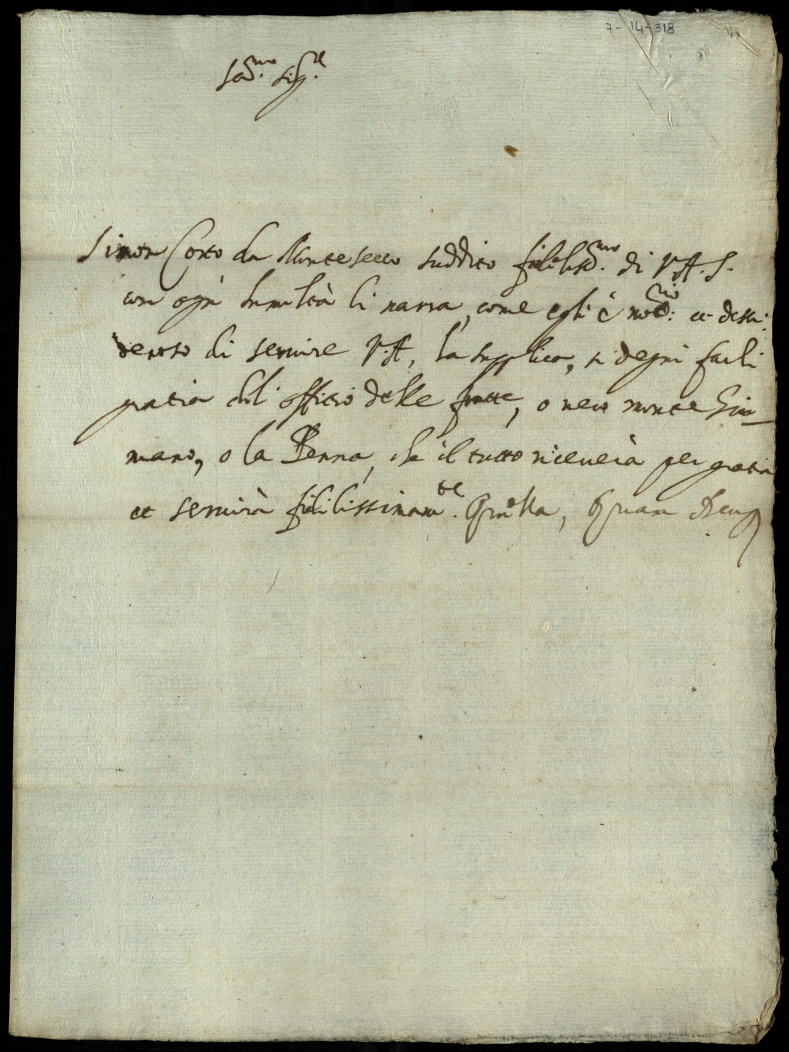 7-14-318
Ser.mo Sig.re
Simon Corto da Montesecco suddito fidelis.mo di V.A.S.
con ogni humiltà li narra, come egli è et desi-
deroso di servire V.A, la supplica, si degni farli
gratia del offitio delle fratte, o vero monte Gri-
mano, o la Penna, che il tutto riceverà per gratia
et servirà fidelissimam.te Quam Deus